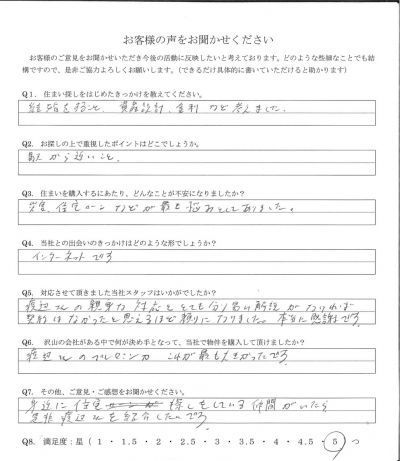 お客様の声をお聞かせください
お客様のご意見をお聞かせいただき今後の活動に反映したいと考えております。どのような些細なことでも結
構ですので、是非ご協力よろしくお願いします。(できるだけ具体的に書いていただけると助かります)
Q1. 住まい探しをはじめたきっかけを教えてください。
結婚をすること、資産設計、金利など考えました。
Q2. お探しの上で重視したポイントはどこでしょうか。
駅から近いこと。
Q3. 住まいを購入するにあたり、どんなことが不安になりましたか?
住宅ローンなどが最も悩みとしてありました。
Q4. 当社との出会いのきっかけはどのような形でしょうか?
インターネットです
Q5. 対応させて頂きました当社スタッフはいかがでしたか?
渡辺さんの親身な対応ととても分り易い解説がなければ
契約はなかったと思えるほど頼りになりました。本当に感謝です。
Q6. 沢山の会社がある中で何が決め手となって、当社で物件を購入して頂けましたか?
渡辺さんの これが最も大きかったです
Q7. その他、ご意見・ご感想をお聞かせください。
身近に住宅 探しをしている仲間がいたら
是非渡辺さんを紹介したいです
Q8. 満足度:星(1・1.5・2・2.5・3・3.5・4・4.5・5)つ